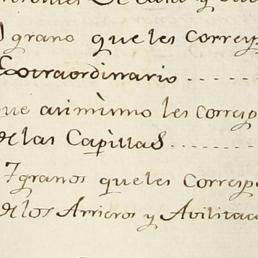 grano que les Corresp
Extraordinario ....
ue asimismo les Corresp
de las Capillas ....
7 granos que les Corresp
de los Arrieros y Avilitac